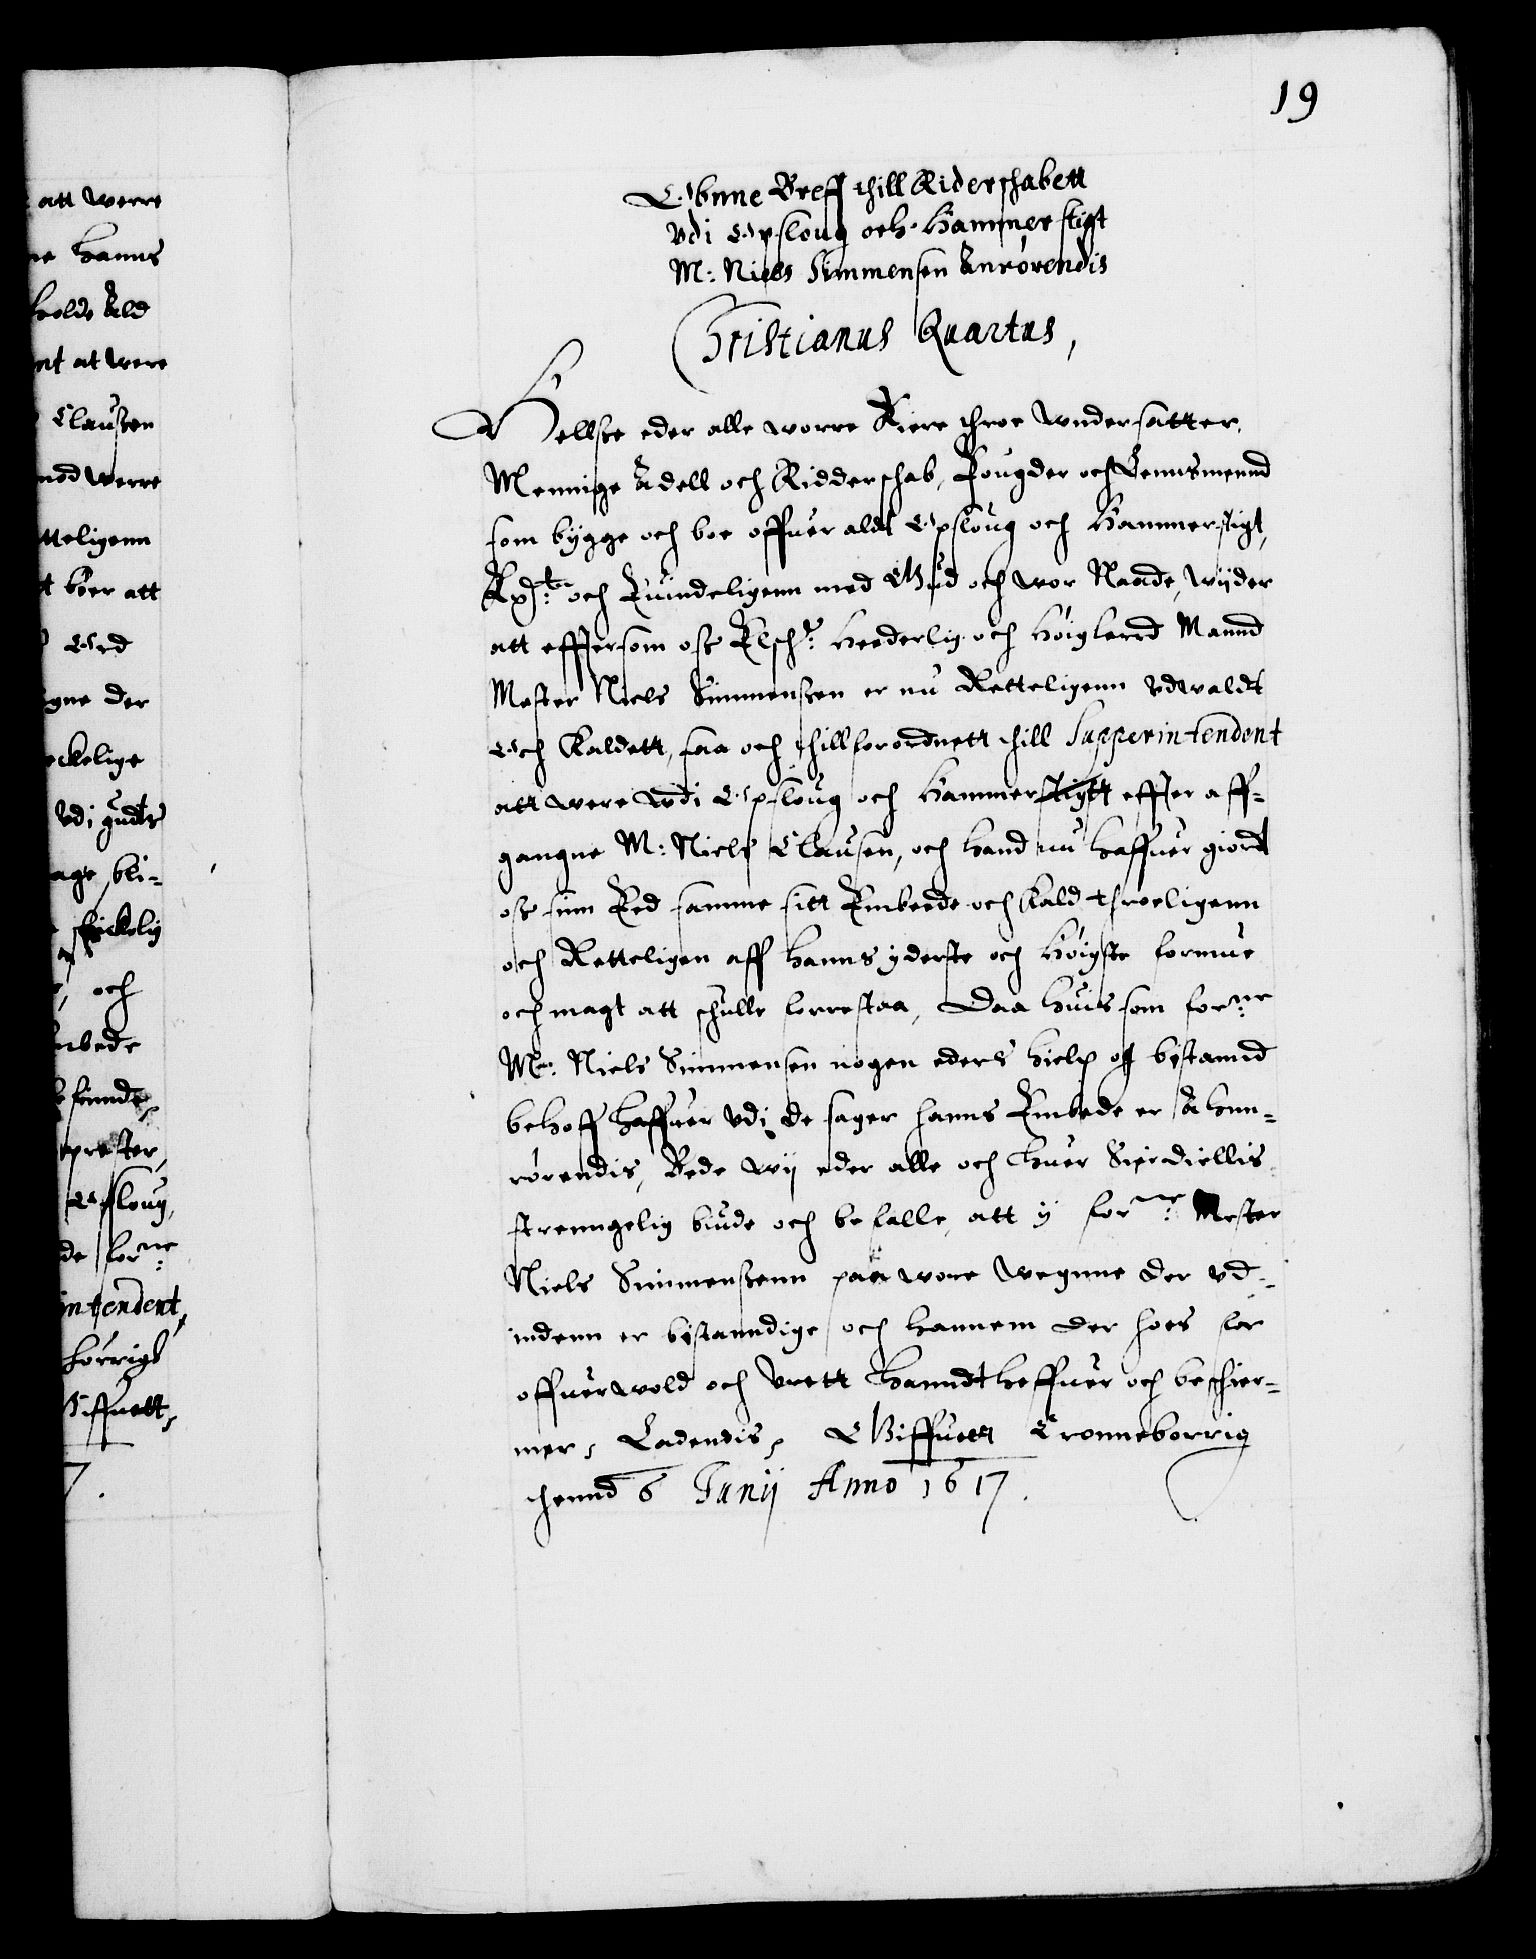 19
Obnne Breff thill Ridderschabett
Vdi Opsloug och Hammerstigt
M: Niels Simmensen Anrörendis
Christianus Quartus,
Hellsse eder alle worre Kiere throe Wndersatter,
Mennige Adell och Ridderschab, Fougder och Lennsmennd
som bygge och boe offuer aldt Opsloug och Hammerstigt,
och Euindeligenn med Gud och wor Naade, Wijder
att effthersom oss Elsch: Hederlig och Höiglerd Mannd
Mester Niels Simmenssen er nu Retteligenn Vdwaldt
Och Kaldett, saa och thillforordnett thill Supperintendent
att were wdi Opsloug och Hammerstigtt effter aff-
gangne M: Niels Clausen, och hand nu haffuer giordt
oss sinn Eed samme sitt Embeede och Kald throeligenn
och Retteligen aff hanns yderste och Höigste formue
och magt att schulle forrestaa, Daa huis som forne:
M: Niels Simmensen nogen eders hielp og bistannd
behoff haffuer Vdi de sager hanns Embede er Ahnn-
rörendis, Bede wij eder alle och huer Serdiellis
strenngelig biude och befalle, att y forne: Mester
Niels Simmenssenn paa wore wegnne der vd-
indenn er bistanndige och hannem der hoes for
offuerwold och Vrett hanndtheffuer och beschier-
mer, Ladendis, Giffuett Cronneborrig
thennd 6 Junij Anno 1617.
att werre
hanns
holde Ald
at were
Claussen
werre
böer att
Ord
der
Vdi gudts
bli-
skickelig
och
prester,
Opsloug,
forne:
intendent,
Giffuett,
7.